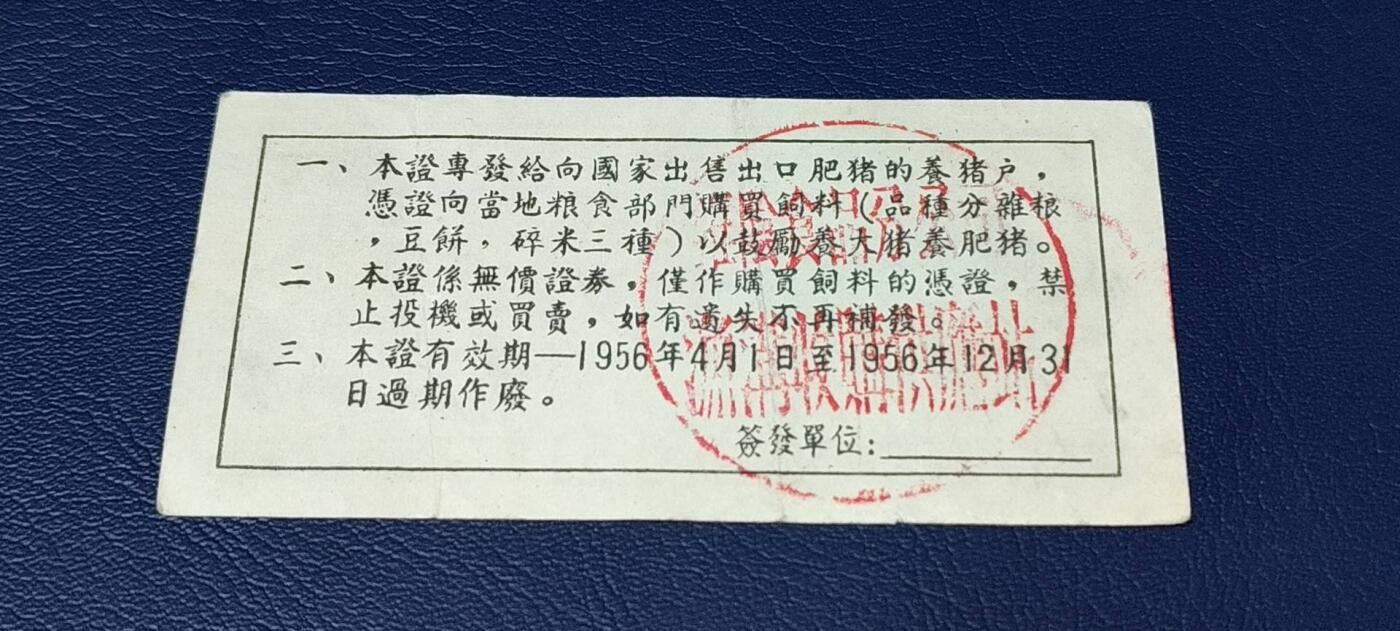 一、本證專發給向國家出售出口肥猪的養猪户，
憑證向當地粮食部門購買飼料（品種分雜粮
，豆餅，碎米三種）以鼓勵養大猪養肥猪。
二、本證係無價證券，僅作購買飼料的憑證，禁
止投機或買賣，如有遺失不再補發。
三、本證有效期—1956年4月1日至1956年12月31
日過期作廢。
簽發單位：